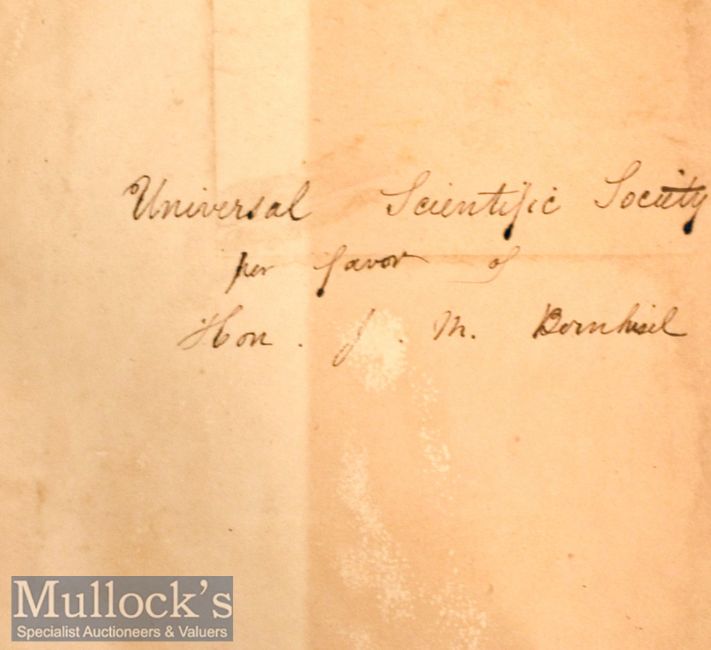 Universal Scientific Society
per favor of
Hon. J. M. Bernhisel
Mullock's
Specialist Auctioneers & Valuers